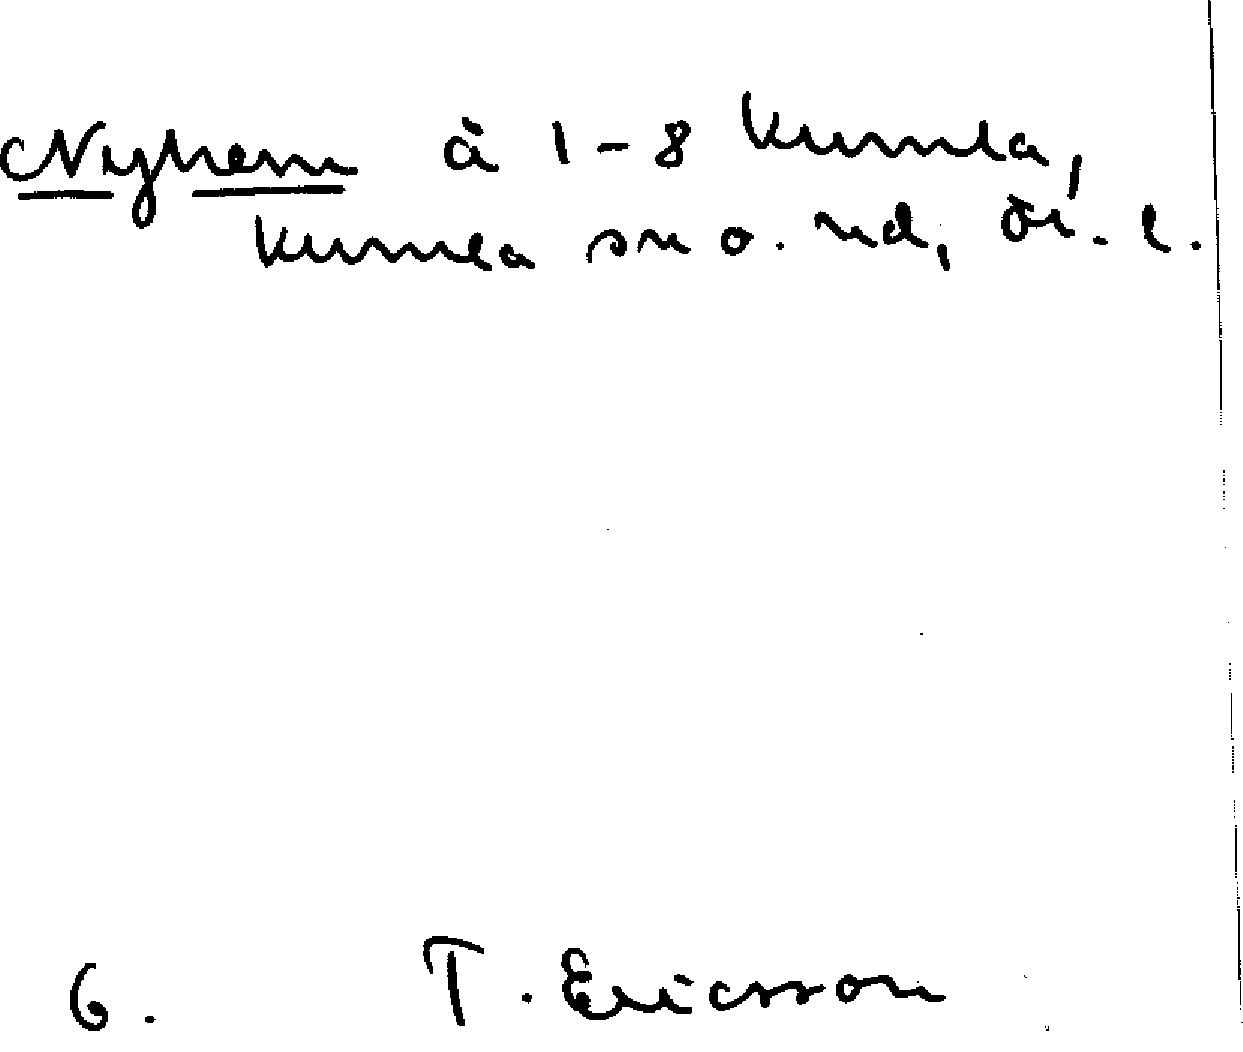 Nyhem à 1-8 Kumla,
Kumla sn o. hd, Ör. l.
6. T. Ericsson